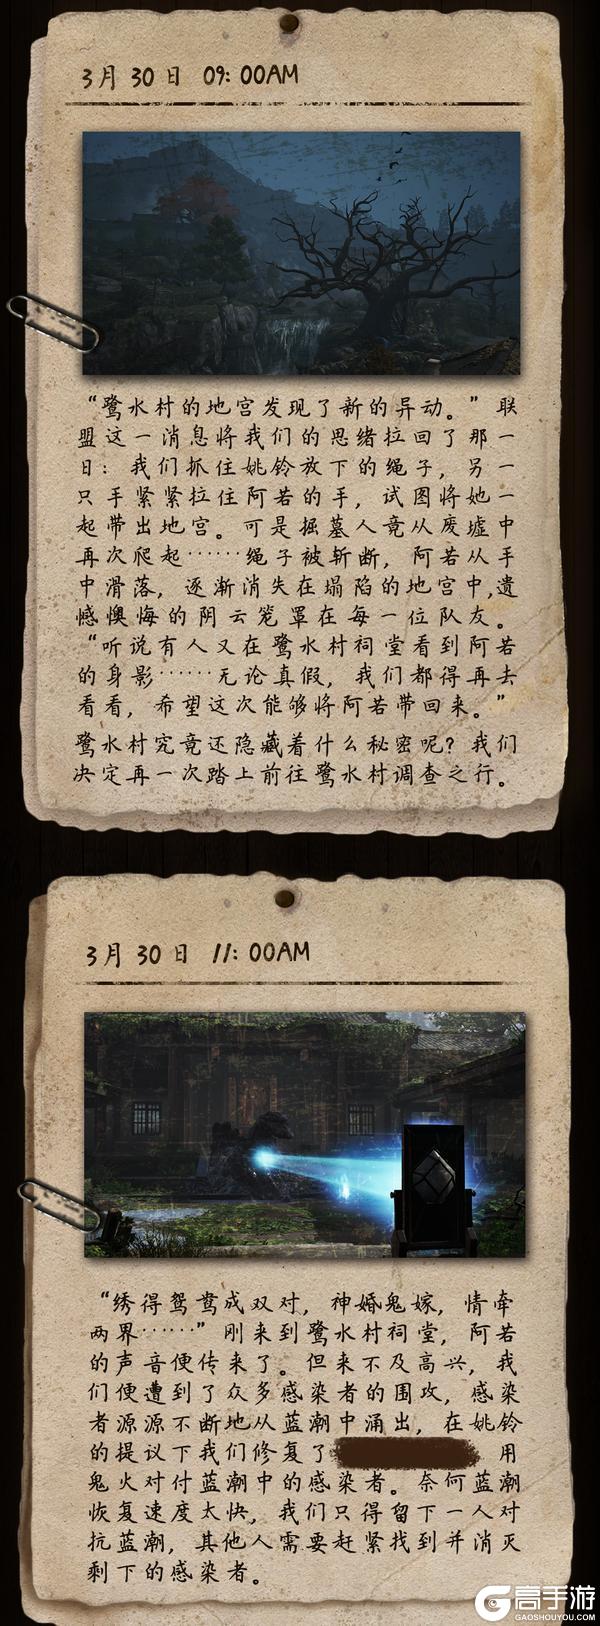 3月30日 09:00AM
“鹭水村的地宫发现了新的异动。”联
盟这一消息将我们的思绪拉回了那一
日：我们抓住姚铃放下的绳子，另一
只手紧紧拉住阿若的手，试图将她一
起带出地宫。可是掘墓人竟从废墟中
再次爬起……绳子被斩断，阿若从手
中滑落，逐渐消失在塌陷的地宫中,遗
憾懊悔的阴云笼罩在每一位队友。
“听说有人又在鹭水村祠堂看到阿若
的身影……无论真假，我们都得再去
看看，希望这次能够将阿若带回来。”
鹭水村究竟还隐藏着什么秘密呢？我们
决定再一次踏上前往鹭水村调查之行。
3月30日 11:00AM
“绣得鸳鸯成双对，神婚鬼嫁，情牵
两界……”刚来到鹭水村祠堂，阿若
的声音便传来了。但来不及高兴，我
们便遭到了众多感染者的围攻，感染
者源源不断地从蓝潮中涌出，在姚铃
的提议下我们修复了 用
鬼火对付蓝潮中的感染者。奈何蓝潮
恢复速度太快，我们只得留下一人对
抗蓝潮，其他人需要赶紧找到并消灭
剩下的感染者。
高手游
GAOSHOUYOU.COM